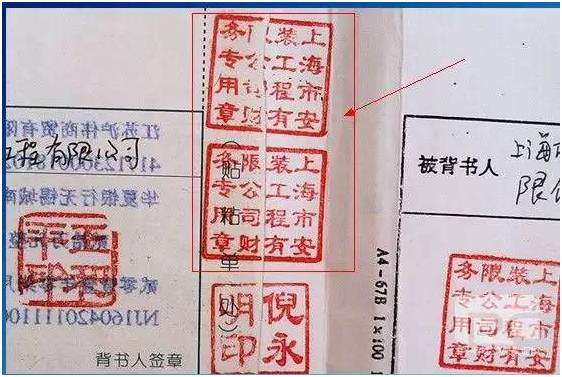 上海市安
装工程有
限公司财
务专用章
上海市安
装工程有
限公司财
务专用章
倪永
明印
(贴粘单处)
江苏沪伟商贸有限
工程有限公司
华夏银行无锡城南
背书人签章
A4-67B 1×100
被背书人
上海
限
上海市安
装工程有
限公司财
务专用章